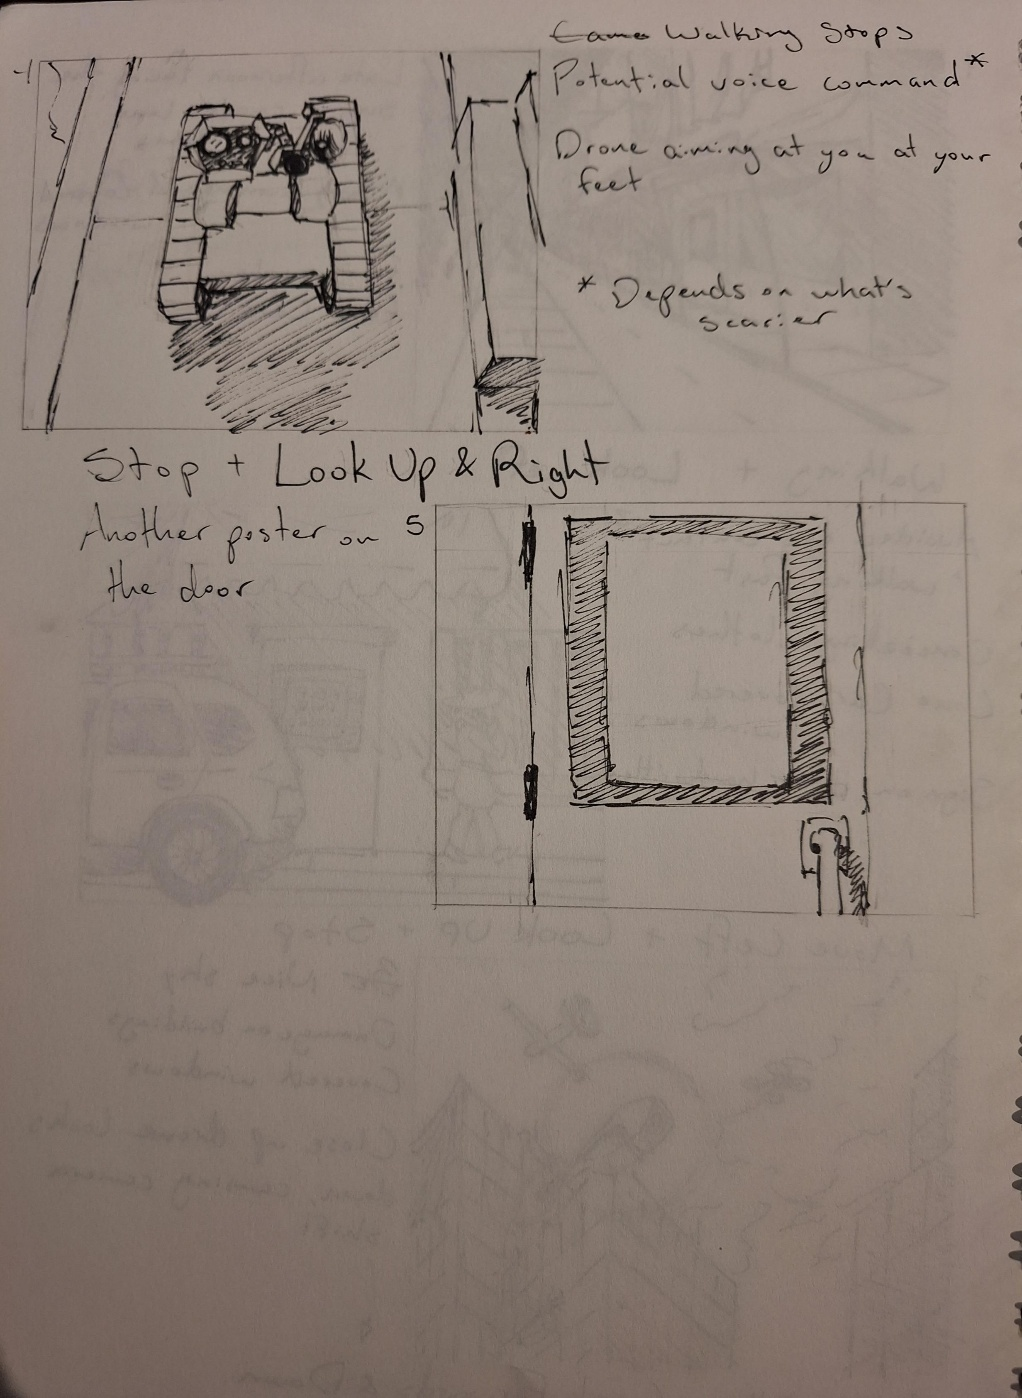 Came Walking Stops
4
Potential voice command*
Drone aiming at you at your
feet
* Depends on what's
scarier
Stop + Look Up & Right
Another poster on
the door
5